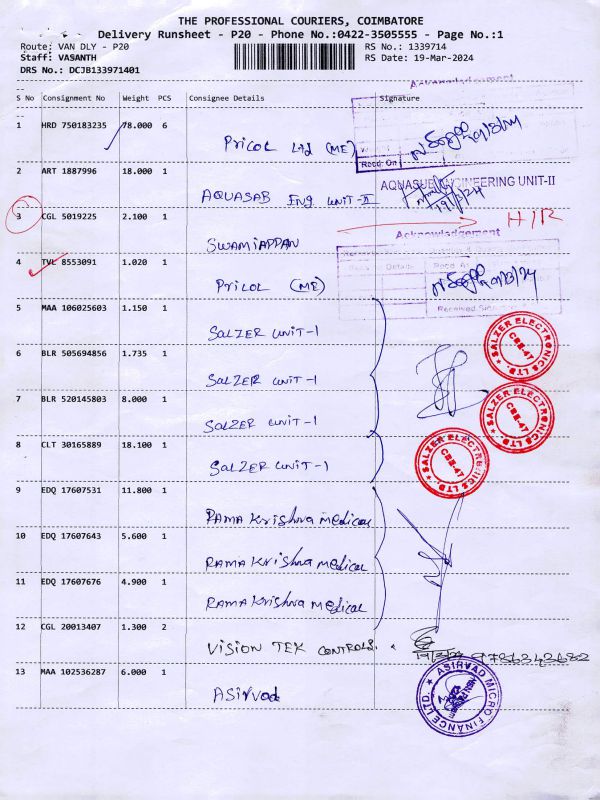 THE PROFESSIONAL COURIERS, COIMBATORE
Delivery Runsheet - P20 - Phone No.:0422-3505555 - Page No.:1
Route: VAN DLY - P20
RS No.: 1339714
Staff: VASANTH
RS Date: 19-Mar-2024
DRS No.: DCJB133971401
S No Consignment No Weight PCS Consignee Details Signature
Acknowledgement
1 HRD 750183235 78.000 6
Pricol Ltd (ME)
Recd. On
2 ART 1887996 18.000 1
AQUASUB ENGINEERING UNIT-II
AQUASAB ENG UNIT-II
19/3/24
3 CGL 5019225 2.100 1
H/R
SWAMIAPPAN
Acknowledgement
4 TVL 8553091 1.020 1
Details
Pricol (ME)
Received Sign
5 MAA 106025603 1.150 1
SALZER UNIT-1
SALZER ELECTRONICS LTD.
CBE-47
6 BLR 505694856 1.735 1
SALZER UNIT-1
7 BLR 520145803 8.000 1
SALZER UNIT-1
SALZER ELECTRONICS LTD.
CBE-47
8 CLT 30165889 18.100 1
SALZER UNIT-1
SALZER ELECTRONICS LTD.
CBE-47
9 EDQ 17607531 11.800 1
RAMA Krishna medical
10 EDQ 17607643 5.600 1
RAMA Krishna medical
11 EDQ 17607676 4.900 1
RAMA Krishna medical
12 CGL 20013407 1.300 2
VISION TEK CONTROLS.
19/3/24 9786342682
13 MAA 102536287 6.000 1
Asirvad
ASIRVAD MICRO FINANCE LTD.